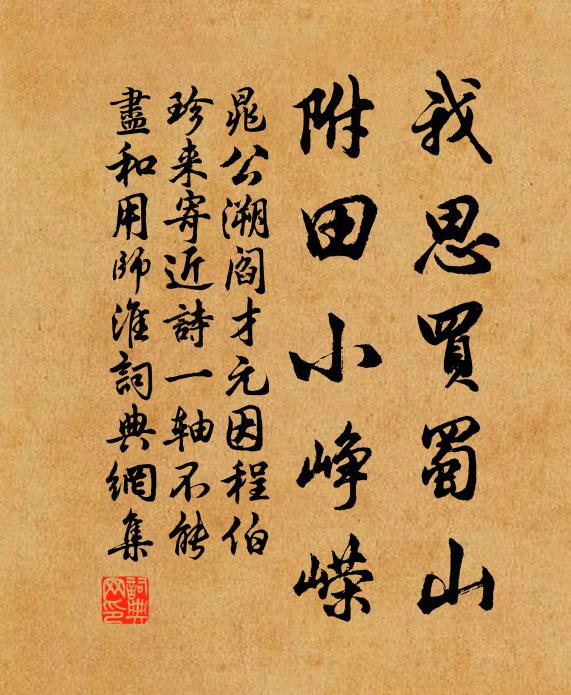 我思買蜀山
附田小崢嶸
晁公溯閻才元因程伯
珍来寄近詩一轴不能
盡和用師淮詞典網集
詞典网印